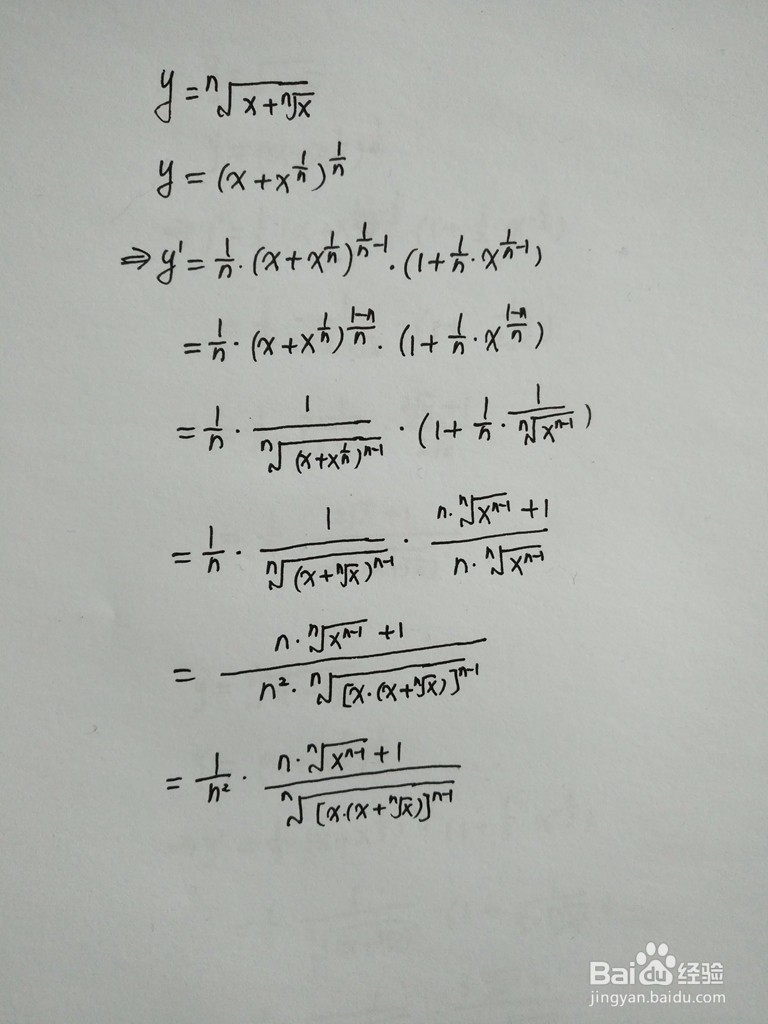 y = ⁿ√(x + ⁿ√x)
y = (x + x^(1/n))^(1/n)
⇒ y' = 1/n · (x + x^(1/n))^(1/n - 1) · (1 + 1/n · x^(1/n - 1))
= 1/n · (x + x^(1/n))^((1-n)/n) · (1 + 1/n · x^((1-n)/n))
= 1/n · 1/ⁿ√((x + x^(1/n))^(n-1)) · (1 + 1/n · 1/ⁿ√(x^(n-1)))
= 1/n · 1/ⁿ√((x + ⁿ√x)^(n-1)) · (n · ⁿ√(x^(n-1)) + 1)/(n · ⁿ√(x^(n-1)))
= (n · ⁿ√(x^(n-1)) + 1)/(n² · ⁿ√([x · (x + ⁿ√x)]^(n-1)))
= 1/n² · (n · ⁿ√(x^(n-1)) + 1)/ⁿ√([x · (x + ⁿ√x)]^(n-1))
Bai du 经验
jingyan.baidu.com